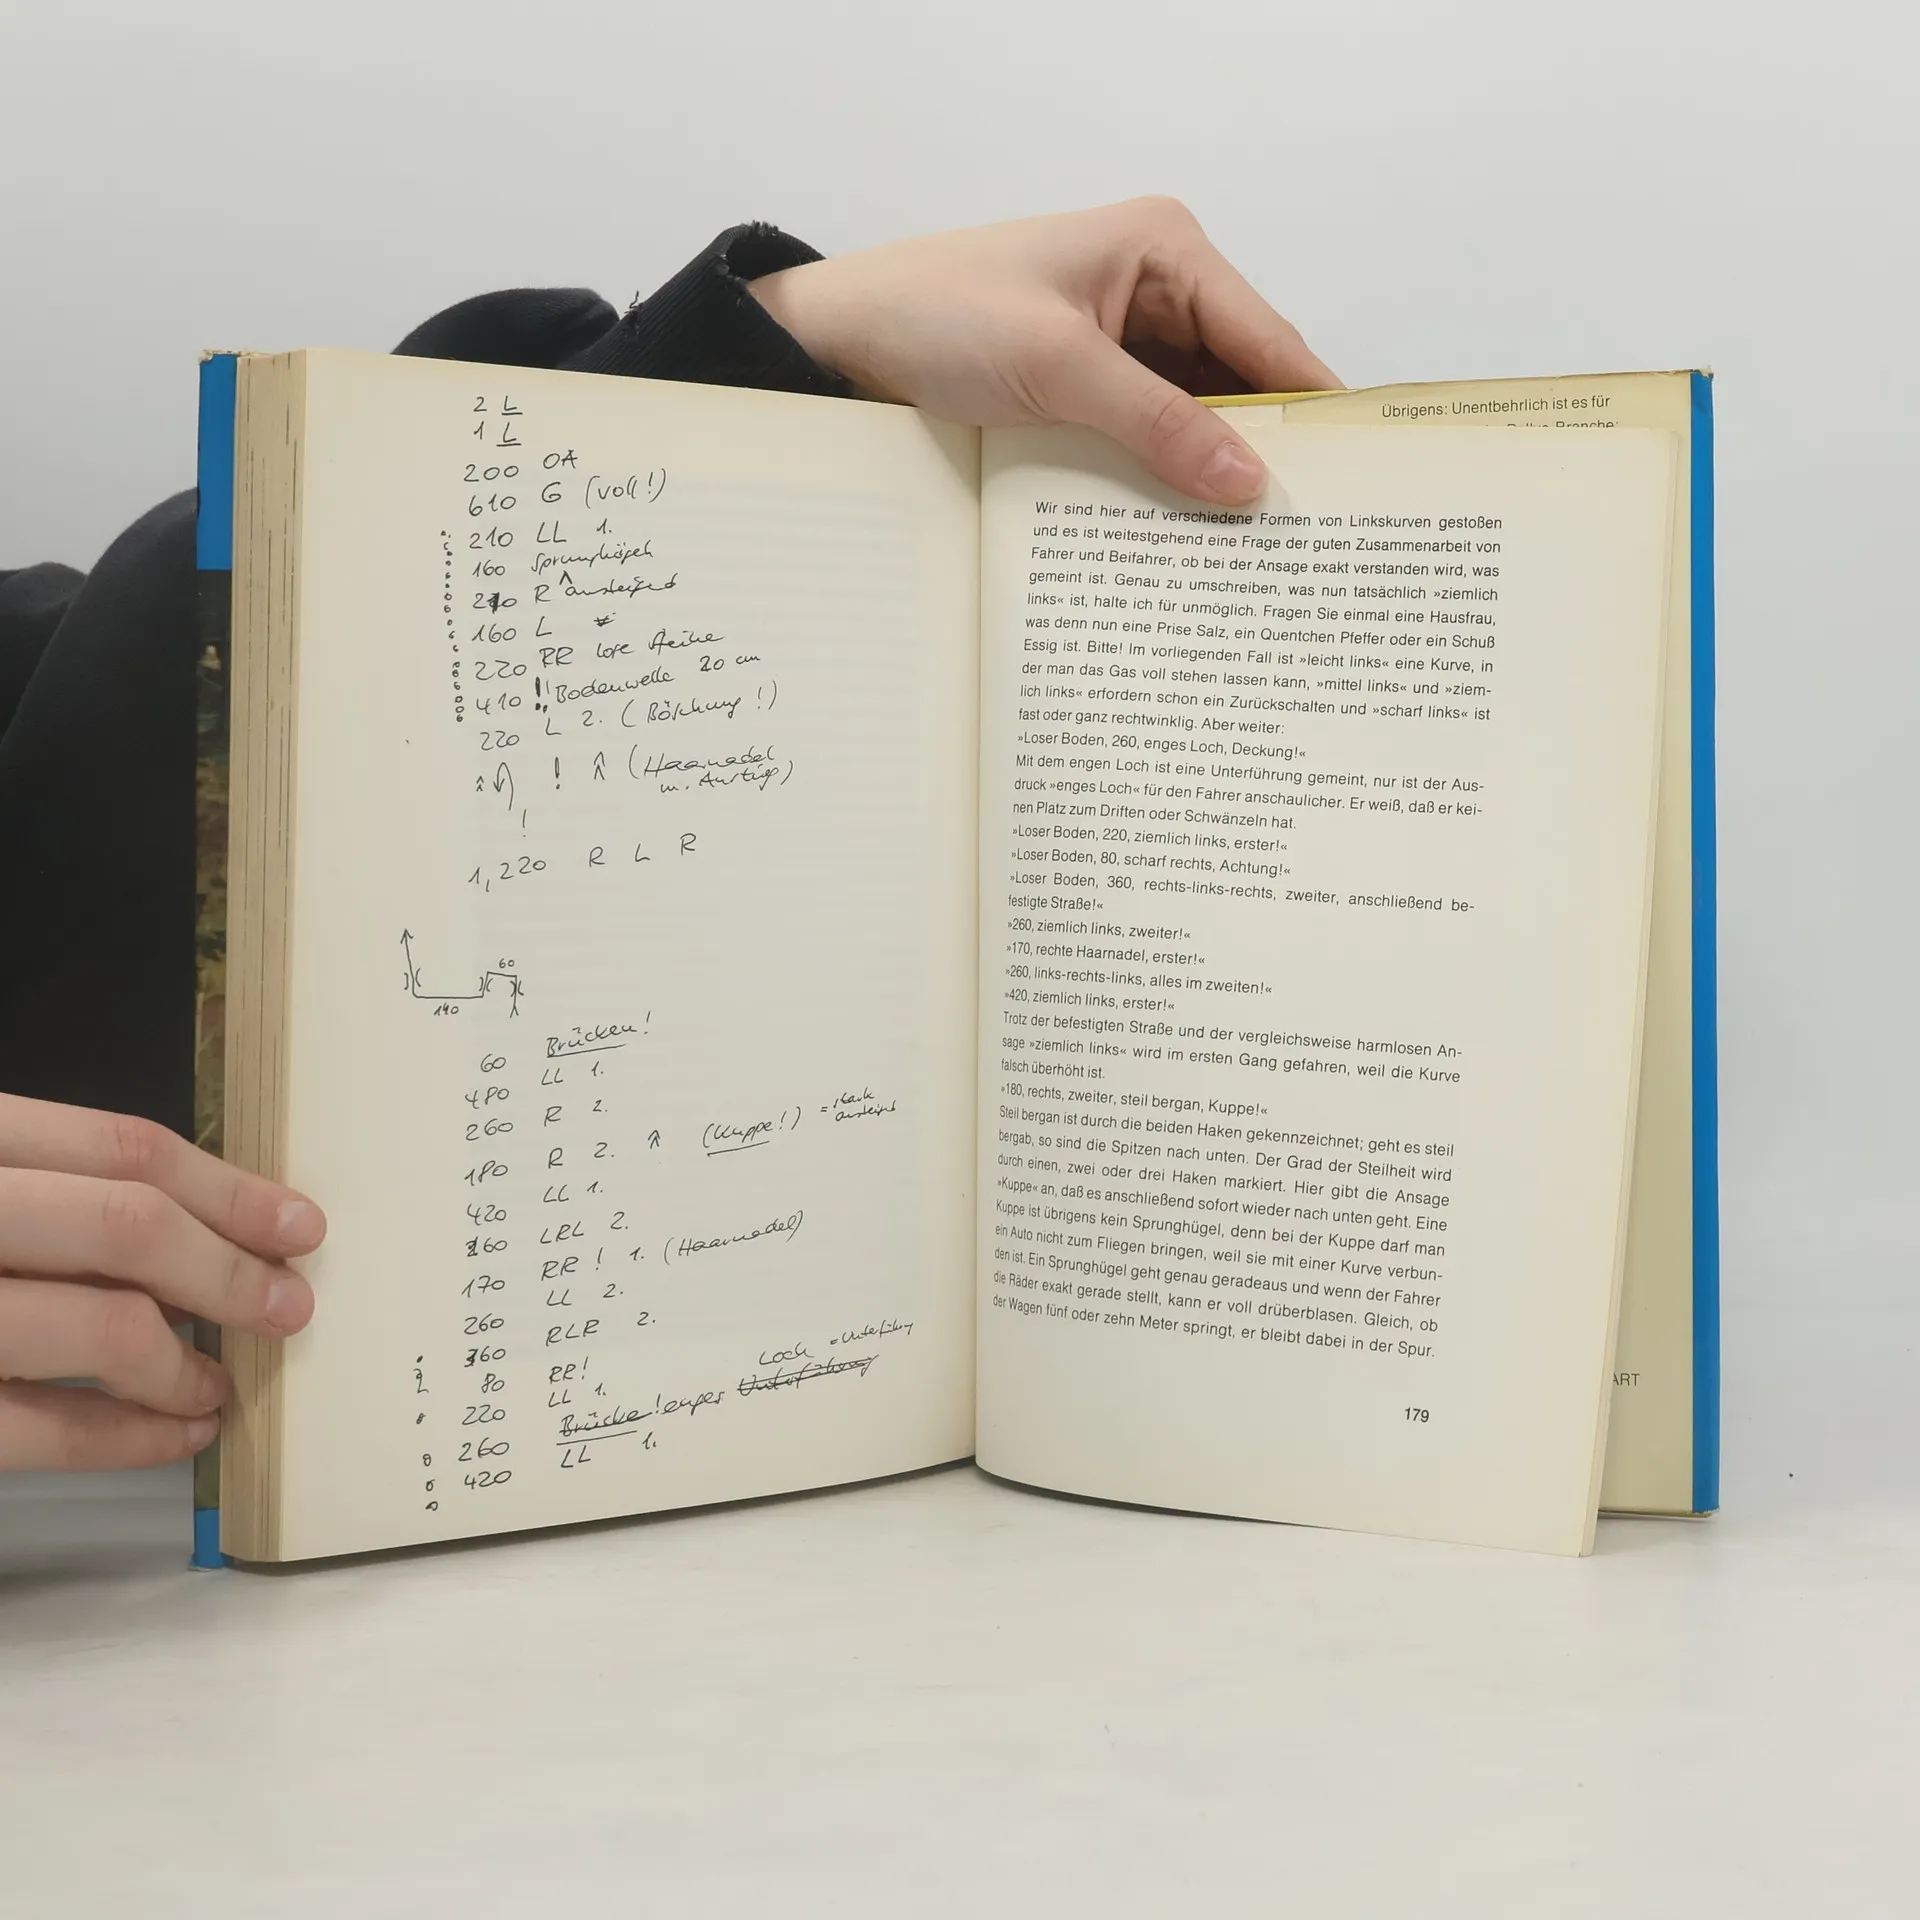 2 L
1 L
200 OA
610 G (voll!)
210 LL 1.
160 Sprunghügel
210 R ansteigend
160 L
220 RR lose Steine
410 !! Bodenwelle 20 cm
220 L 2. (Böschung!)
! (Haarnadel
m. Anstieg)
!
1,220 R L R
60
140
Brücken!
60
480 LL 1.
260 R 2.
180 R 2. (Kuppe!) = stark
ansteigend
420 LL 1.
260 LRL 2.
170 RR! 1. (Haarnadel)
260 LL 2.
360 RLR 2.
80 RR!
220 LL 1.
Loch = Unterführung
260 Brücke! enges Unterführung
420 LL 1.
Übrigens: Unentbehrlich ist es für
Wir sind hier auf verschiedene Formen von Linkskurven gestoßen
und es ist weitestgehend eine Frage der guten Zusammenarbeit von
Fahrer und Beifahrer, ob bei der Ansage exakt verstanden wird, was
gemeint ist. Genau zu umschreiben, was nun tatsächlich »ziemlich
links« ist, halte ich für unmöglich. Fragen Sie einmal eine Hausfrau,
was denn nun eine Prise Salz, ein Quentchen Pfeffer oder ein Schuß
Essig ist. Bitte! Im vorliegenden Fall ist »leicht links« eine Kurve, in
der man das Gas voll stehen lassen kann, »mittel links« und »ziem-
lich links« erfordern schon ein Zurückschalten und »scharf links« ist
fast oder ganz rechtwinklig. Aber weiter:
»Loser Boden, 260, enges Loch, Deckung!«
Mit dem engen Loch ist eine Unterführung gemeint, nur ist der Aus-
druck »enges Loch« für den Fahrer anschaulicher. Er weiß, daß er kei-
nen Platz zum Driften oder Schwänzeln hat.
»Loser Boden, 220, ziemlich links, erster!«
»Loser Boden, 80, scharf rechts, Achtung!«
»Loser Boden, 360, rechts-links-rechts, zweiter, anschließend be-
festigte Straße!«
»260, ziemlich links, zweiter!«
»170, rechte Haarnadel, erster!«
»260, links-rechts-links, alles im zweiten!«
»420, ziemlich links, erster!«
Trotz der befestigten Straße und der vergleichsweise harmlosen An-
sage »ziemlich links« wird im ersten Gang gefahren, weil die Kurve
falsch überhöht ist.
»180, rechts, zweiter, steil bergan, Kuppe!«
Steil bergan ist durch die beiden Haken gekennzeichnet; geht es steil
bergab, so sind die Spitzen nach unten. Der Grad der Steilheit wird
durch einen, zwei oder drei Haken markiert. Hier gibt die Ansage
»Kuppe« an, daß es anschließend sofort wieder nach unten geht. Eine
Kuppe ist übrigens kein Sprunghügel, denn bei der Kuppe darf man
ein Auto nicht zum Fliegen bringen, weil sie mit einer Kurve verbun-
den ist. Ein Sprunghügel geht genau geradeaus und wenn der Fahrer
die Räder exakt gerade stellt, kann er voll drüberblasen. Gleich, ob
der Wagen fünf oder zehn Meter springt, er bleibt dabei in der Spur.
ART
179